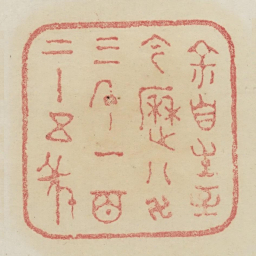 余自生至
今歷八卍
三千一百
二十五年